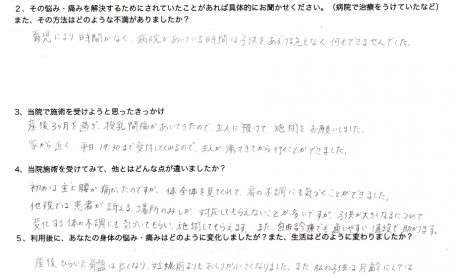 2、その悩み・痛みを解決するためにされていたことがあれば具体的にお聞かせください。（病院で治療をうけていたなど）
また、その方法はどのような不満がありましたか？
育児により時間がなく、病院があいている時間は子供をあずける先もなく何もできませんでした。
3、当院で施術を受けようと思ったきっかけ
産後3ヶ月を過ぎ、授乳間隔があいてきたので、主人に預けて、施術をお願いしました。
家から近く、平日19:30まで受付しているので、主人が帰ってきてから行くことができました。
4、当院施術を受けてみて、他とはどんな点が違いましたか？
初めは主に腰が痛かったのですが、体全体を見てくれて、肩の不調にも気づくことができました。
他院では患者が訴える場所のみしか対応してもらえないことが多いですが、子供が大きくなるにつれて
変化する体の不調にも気づいてもらい、施術してもらえます。また、自由診療でも通しやすい値段で助かります。
5、利用後に、あなたの身体の悩み・痛みはどのように変化しましたか？また、生活はどのように変わりましたか？
産後ひらいた骨盤は良くなり、妊娠前よりもおしりが小さくなりました。また私の子供は月齢にしては